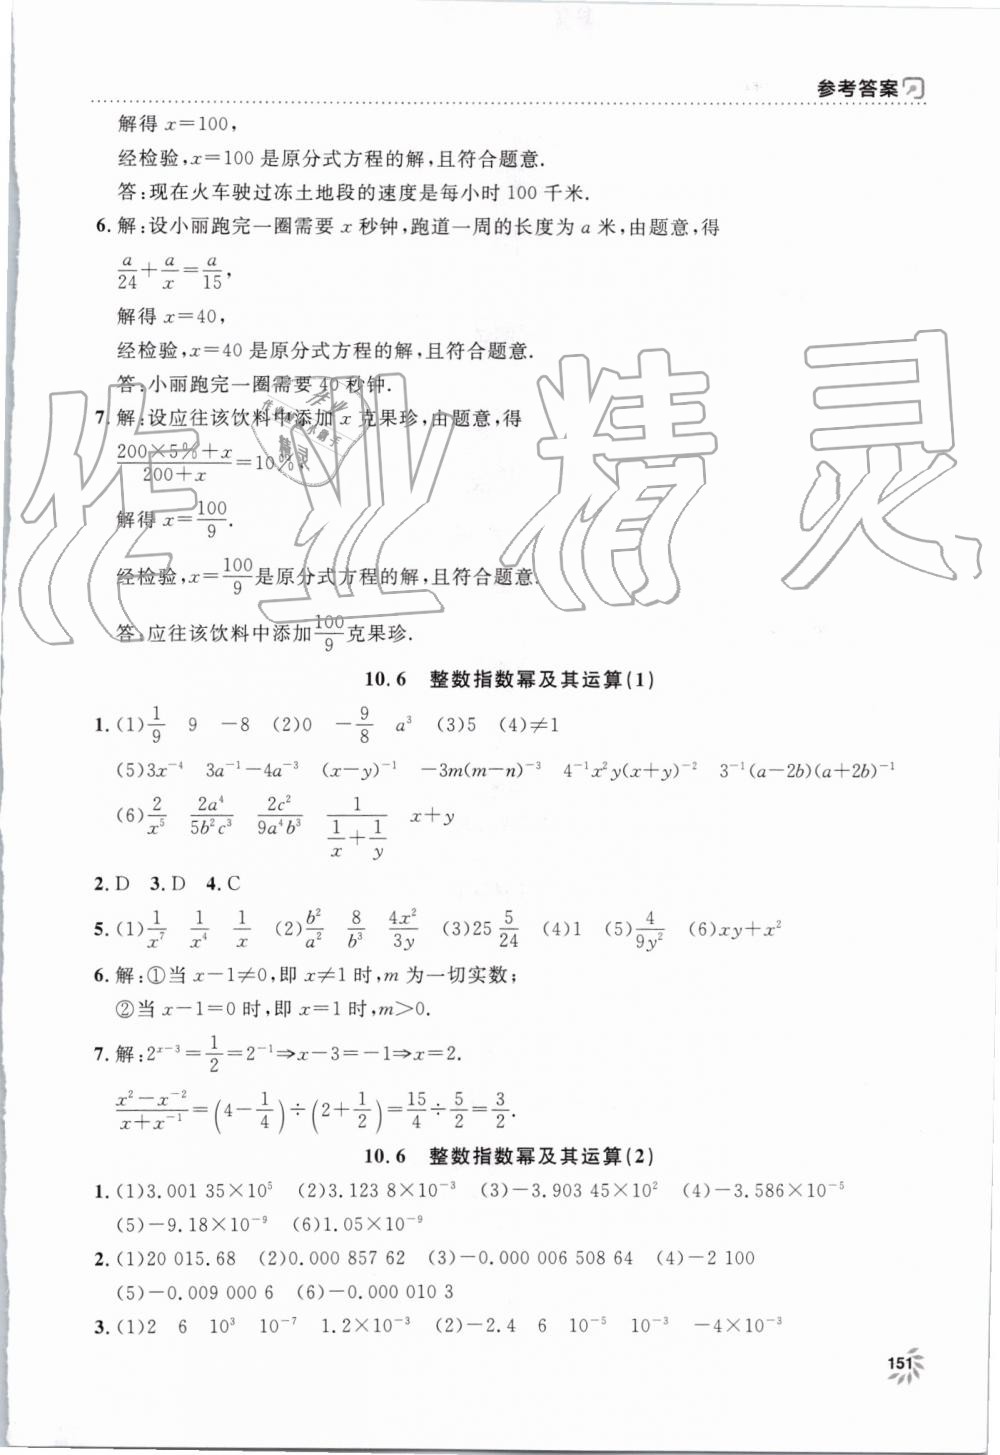 参考答案
解得 x=100,
经检验,x=100 是原分式方程的解,且符合题意.
答:现在火车驶过冻土地段的速度是每小时 100 千米.
6. 解:设小丽跑完一圈需要 x 秒钟,跑道一周的长度为 a 米,由题意,得
a/24 + a/x = a/15,
解得 x=40,
经检验,x=40 是原分式方程的解,且符合题意.
答:小丽跑完一圈需要 40 秒钟.
7. 解:设应往该饮料中添加 x 克果珍,由题意,得
(200×5%+x)/(200+x) = 10%,
解得 x=100/9.
经检验,x=100/9 是原分式方程的解,且符合题意.
答:应往该饮料中添加 100/9 克果珍.
10.6 整数指数幂及其运算(1)
1. (1) 1/9 9 −8 (2)0 −9/8 a³ (3)5 (4)≠1
(5)3x⁻⁴ 3a⁻¹−4a⁻³ (x−y)⁻¹ −3m(m−n)⁻³ 4⁻¹x²y(x+y)⁻² 3⁻¹(a−2b)(a+2b)⁻¹
(6) 2/x⁵ 2a⁴/(5b²c³) 2c²/(9a⁴b³) 1/(1/x+1/y) x+y
2. D 3. D 4. C
5. (1) 1/x⁷ 1/x⁴ 1/x (2) b²/a² 8/b³ 4x²/3y (3)25 5/24 (4)1 (5) 4/9y² (6)xy+x²
6. 解:①当 x−1≠0,即 x≠1 时,m 为一切实数;
②当 x−1=0 时,即 x=1 时,m>0.
7. 解:2ˣ⁻³=1/2=2⁻¹⇒x−3=−1⇒x=2.
(x²−x⁻²)/(x+x⁻¹)=(4−1/4)÷(2+1/2)=15/4÷5/2=3/2.
10.6 整数指数幂及其运算(2)
1. (1)3.001 35×10⁵ (2)3.123 8×10⁻³ (3)−3.903 45×10² (4)−3.586×10⁻⁵
(5)−9.18×10⁻⁹ (6)1.05×10⁻⁹
2. (1)20 015.68 (2)0.000 857 62 (3)−0.000 006 508 64 (4)−2 100
(5)−0.009 000 6 (6)−0.000 010 3
3. (1)2 6 10³ 10⁻⁷ 1.2×10⁻³ (2)−2.4 6 10⁻⁵ 10⁻³ −4×10⁻³
151
作业精灵